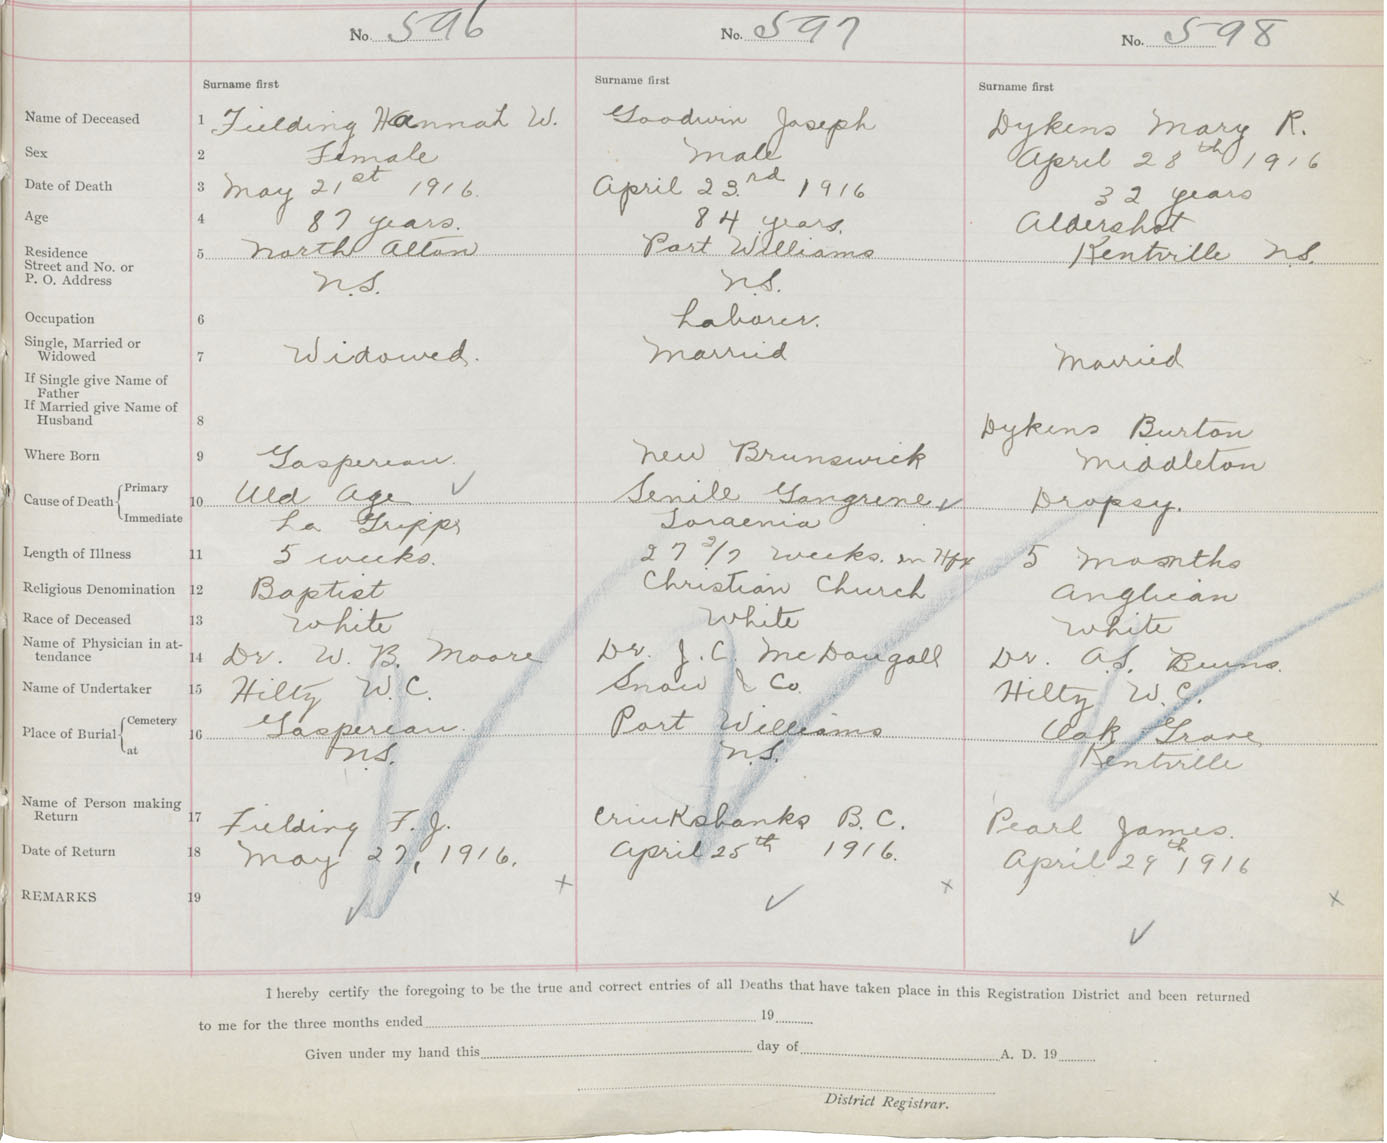 No. 596 No. 597 No. 598
Surname first Surname first Surname first
Name of Deceased 1 Fielding Hannah W. Goodwin Joseph Dykens Mary R.
Sex 2 Female Male April 28th 1916
Date of Death 3 May 21st 1916. April 23rd 1916 32 years
Age 4 87 years. 84 years. Aldershot
Residence 5 North Alton Port Williams Kentville N.S.
Street and No. or
P. O. Address N.S. N.S.
Occupation 6 Laborer.
Single, Married or
Widowed 7 Widowed. Married Married
If Single give Name of
Father
If Married give Name of
Husband 8 Dykens Burton
Where Born 9 Gaspereau. New Brunswick Middleton
Cause of Death Primary 10 Old Age Senile Gangrene Dropsy.
Immediate La Grippe
Length of Illness 11 5 weeks. 27 2/7 weeks. in Hfx 5 Months
Religious Denomination 12 Baptist Christian Church Anglican
Race of Deceased 13 White White White
Name of Physician in at-
tendance 14 Dr. W. B. Moore Dr. J. C. McDougall Dr. A.S. Burns.
Name of Undertaker 15 Hilty W.C. Snow & Co. Hilty W.C.
Place of Burial Cemetery 16 Gaspereau. Port Williams Oak Grove
at N.S. N.S. Kentville
Name of Person making
Return 17 Fielding F. J. Cruikshanks B. C. Pearl James.
Date of Return 18 May 27, 1916. April 25th 1916. April 29th 1916
REMARKS 19
I hereby certify the foregoing to be the true and correct entries of all Deaths that have taken place in this Registration District and been returned
to me for the three months ended 19
Given under my hand this day of A. D. 19
District Registrar.